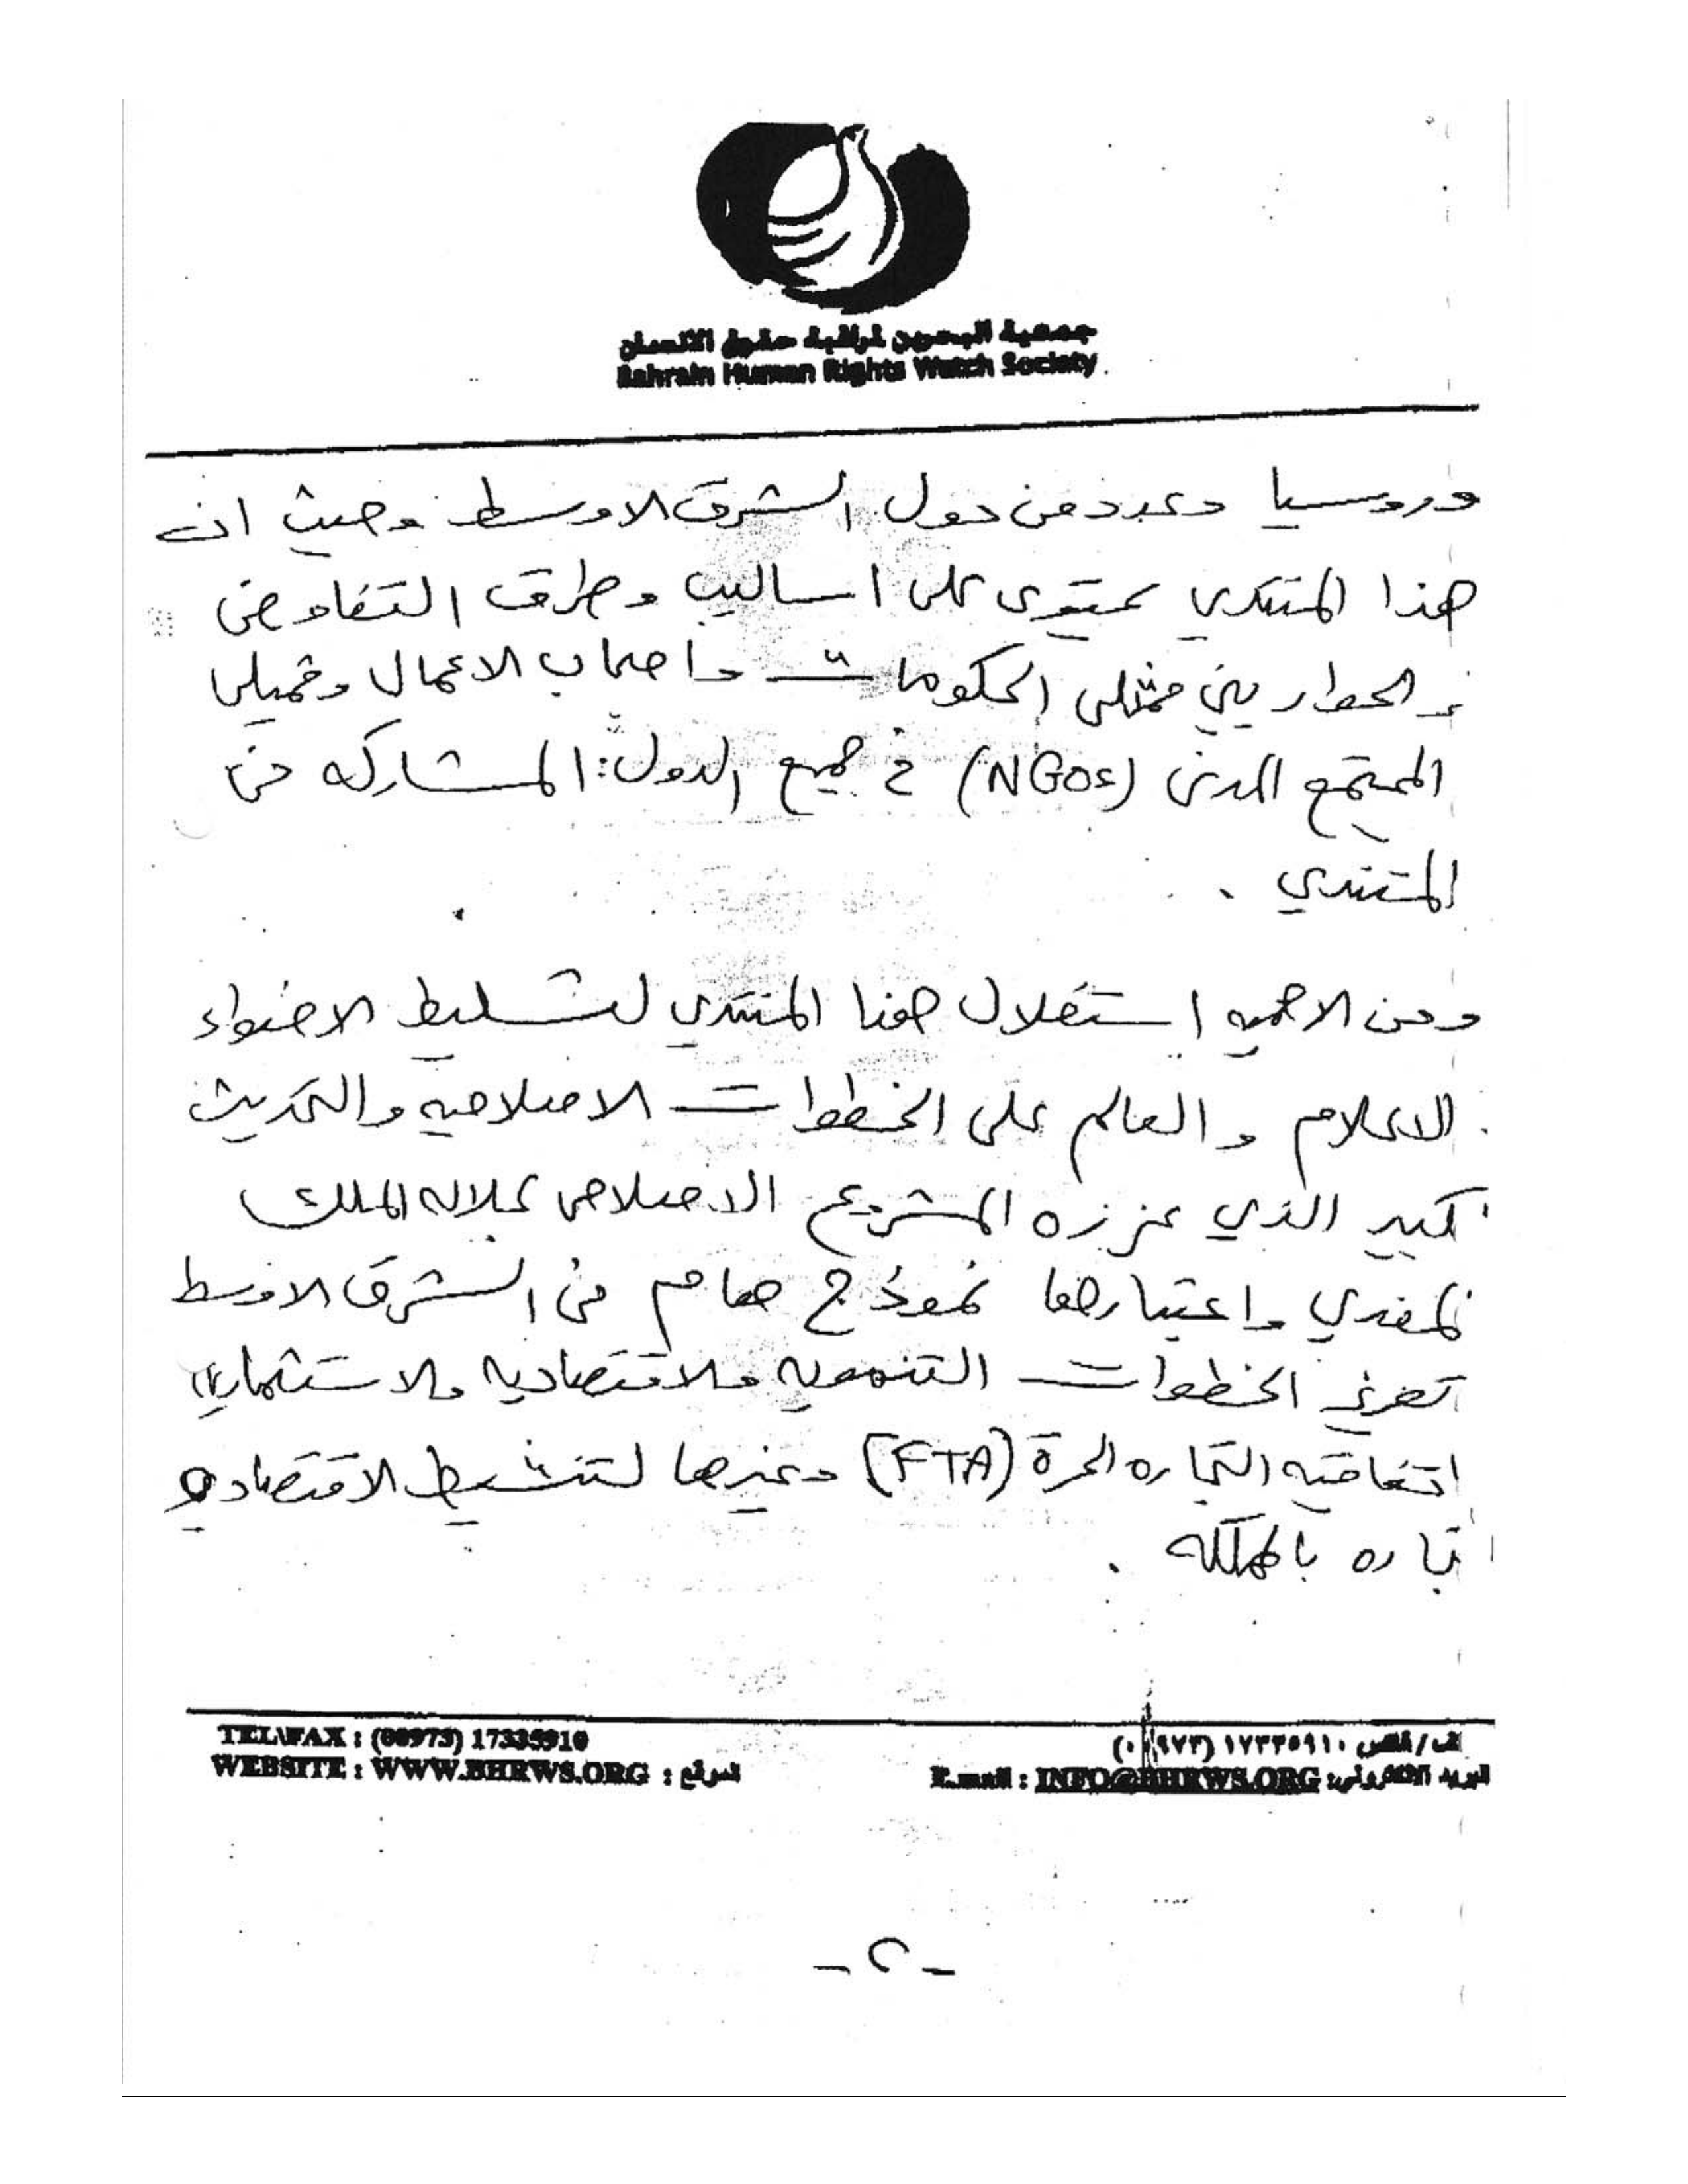 جمعية البحرين لمراقبة حقوق الانسان
Bahrain Human Rights Watch Society
وروسيا وعدد من دول الشرق الاوسط وحيث ان
هذا المنتدى يحتوى على اساليب وطرق التفاوض
والحوار بين ممثلى الحكومات واصحاب الاعمال وممثلى
المجتمع المدنى (NGOs) في جميع الدول المشاركه في
المنتدي .
ومن الاهميه استغلال هذا المنتدي لتسليط الاضواء
الاعلام والعالم على الخطوات الاصلاحيه والتحديث
كبير الذي عززه المشروع الاصلاحى لجلاله الملك
المفدي واعتبارها نموذج هام في الشرق الاوسط
الخطوات التنمويه والاقتصاديه والاستثماريه
اتفاقيه التجاره الحرة (FTA) وغيرها لتنشيط الاقتصاد و
تجاره بالمملكه .
TEL\FAX : (00973) 17335910
تلف/فاكس ١٧٣٣٥٩١٠ (٠٠٩٧٣)
WEBSITE : WWW.BHRWS.ORG : الموقع
E.mail : INFO@BHRWS.ORG :البريد الالكتروني
- ٢ -